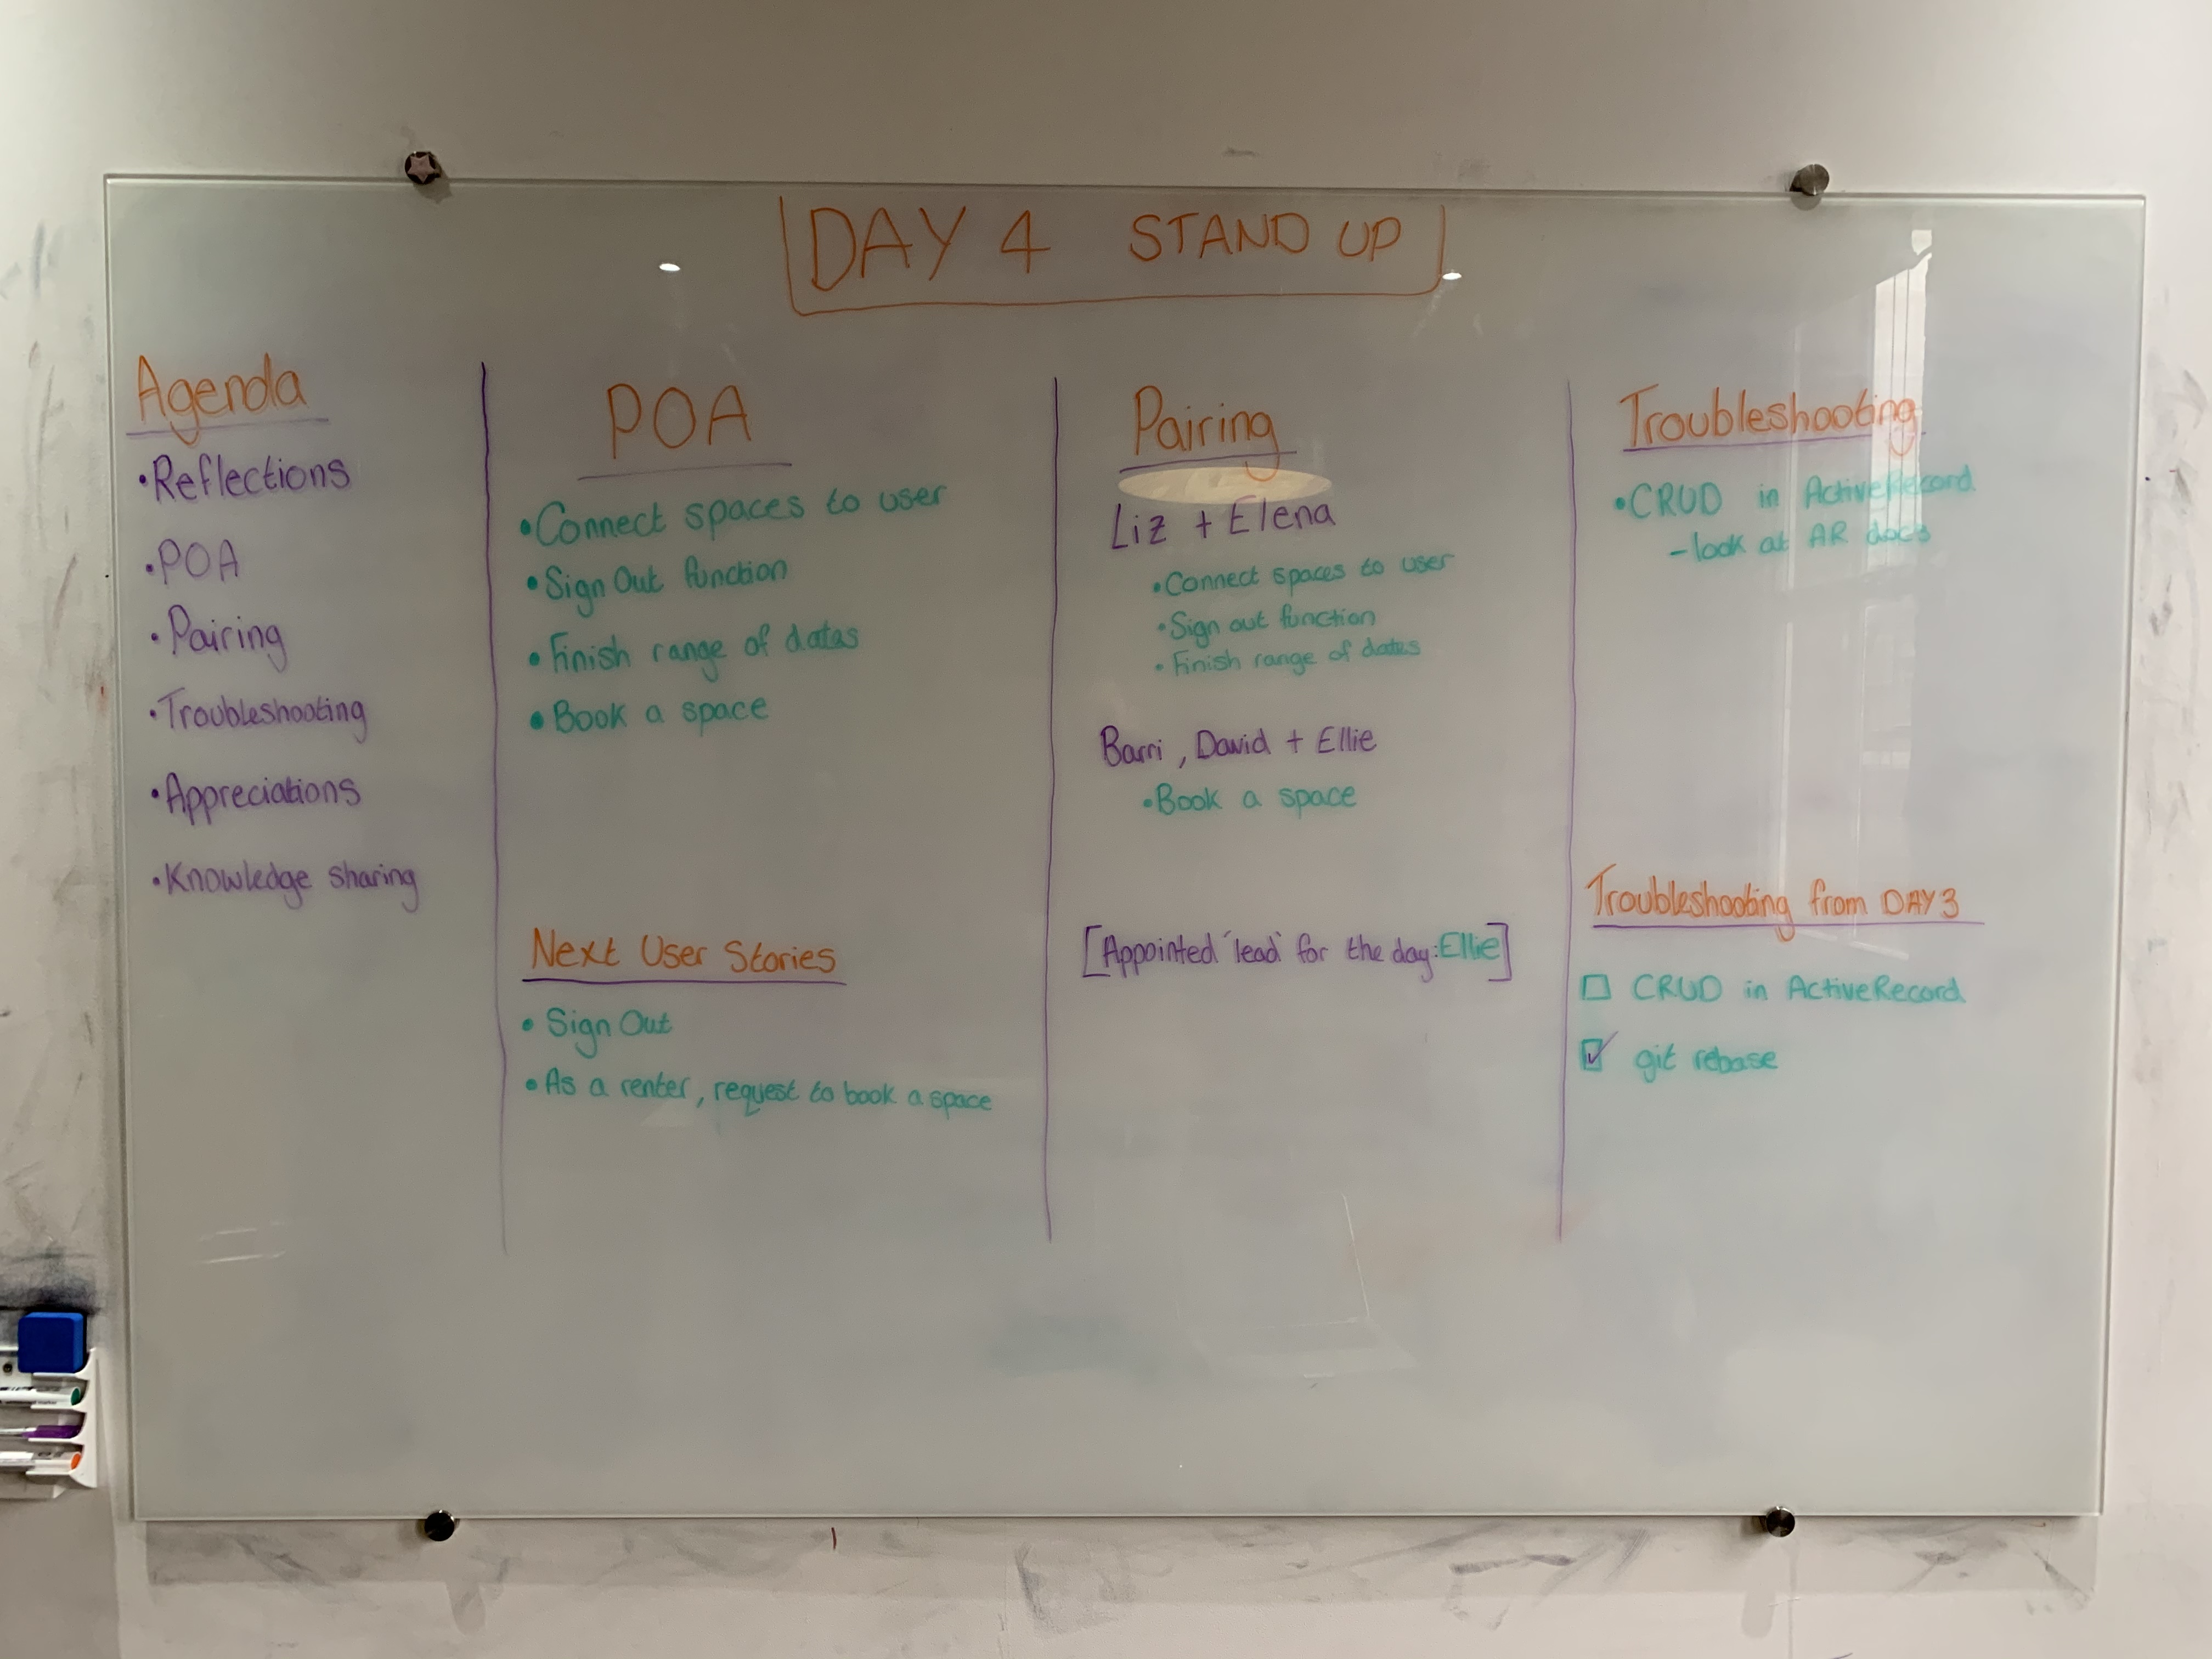 DAY 4 STAND UP
Agenda
•Reflections
•POA
•Pairing
•Troubleshooting
•Appreciations
•Knowledge sharing
POA
•Connect spaces to user
•Sign Out function
•Finish range of dates
•Book a space
Next User Stories
•Sign Out
•As a renter, request to book a space
Pairing
Liz + Elena
•Connect spaces to user
•Sign out function
•Finish range of dates
Barri, David + Ellie
•Book a space
[Appointed 'lead' for the day: Ellie]
Troubleshooting
•CRUD in ActiveRecord
-look at AR docs
Troubleshooting from DAY 3
☐ CRUD in ActiveRecord
☑ git rebase